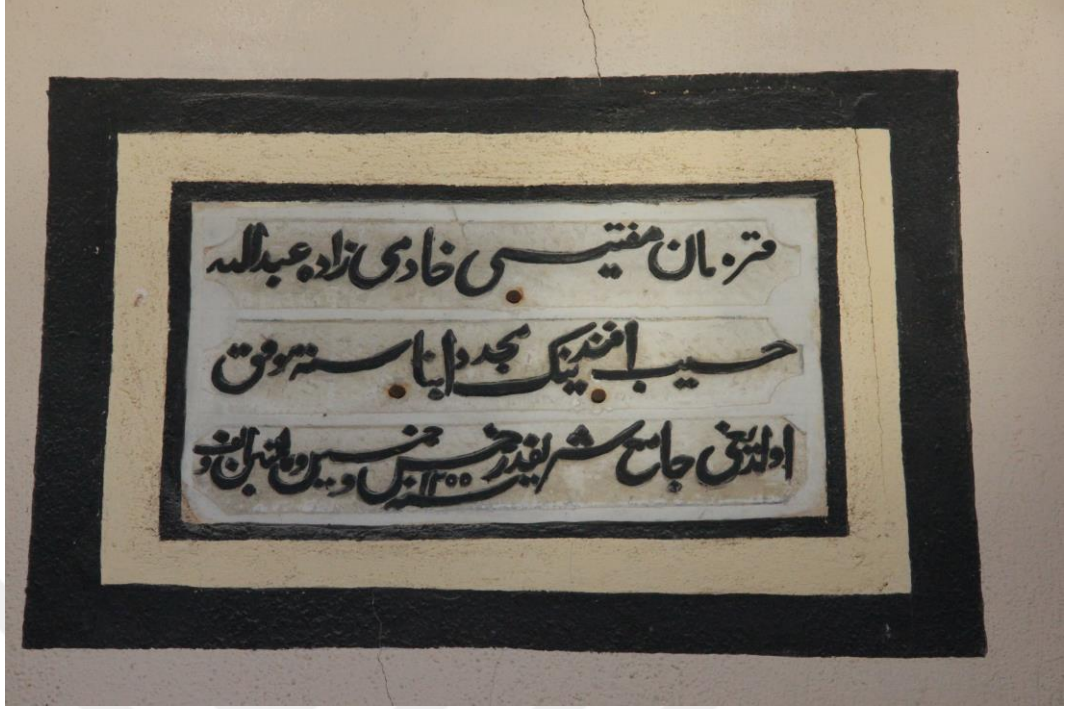 قره مان مفتيسى خادمى زاده عبدالله
حسيب افندينك مجددا بناسنه موفق
اولديغى جامع شريفدر خمس وخمسين ومائتين والف
سنه